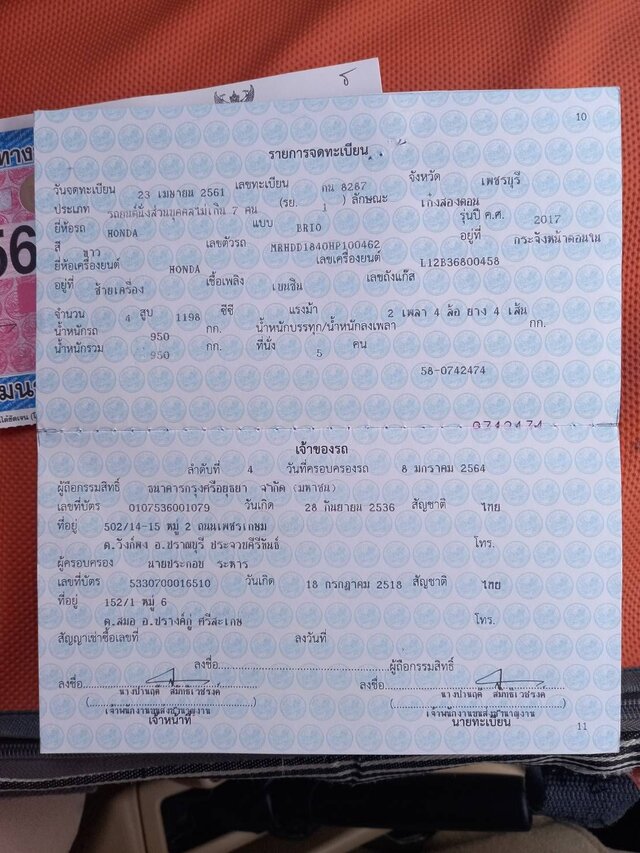 ทาง
56
10
รายการจดทะเบียน
วันจดทะเบียน 23 เมษายน 2561 เลขทะเบียน กน 8287 จังหวัด เพชรบุรี
ประเภท รถยนต์นั่งส่วนบุคคลไม่เกิน 7 คน (รย. 1 ) ลักษณะ เก๋งสองตอน
ยี่ห้อรถ HONDA แบบ BRIO รุ่นปี ค.ศ. 2017
สี ขาว เลขตัวรถ MRHDD1840HP100462 อยู่ที่ กระจังหน้าตอนใน
ยี่ห้อเครื่องยนต์ HONDA เลขเครื่องยนต์ L12B36800458
อยู่ที่ ซ้ายเครื่อง เชื้อเพลิง เบนซิน เลขถังแก๊ส
จำนวน 4 สูบ 1198 ซีซี แรงม้า 2 เพลา 4 ล้อ ยาง 4 เส้น
น้ำหนักรถ 950 กก. น้ำหนักบรรทุก/น้ำหนักลงเพลา กก.
น้ำหนักรวม 950 กก. ที่นั่ง 5 คน
58-0742474
0742474
เจ้าของรถ
ลำดับที่ 4 วันที่ครอบครองรถ 8 มกราคม 2564
ผู้ถือกรรมสิทธิ์ ธนาคารกรุงศรีอยุธยา จำกัด (มหาชน)
เลขที่บัตร 0107536001079 วันเกิด 28 กันยายน 2536 สัญชาติ ไทย
ที่อยู่ 502/14-15 หมู่ 2 ถนนเพชรเกษม
ต.วังก์พง อ.ปราณบุรี ประจวบคีรีขันธ์ โทร.
ผู้ครอบครอง นายประกอบ ระหาร
เลขที่บัตร 5330700016510 วันเกิด 18 กรกฎาคม 2518 สัญชาติ ไทย
ที่อยู่ 152/1 หมู่ 6
ต.สมอ อ.ปรางค์กู่ ศรีสะเกษ โทร.
สัญญาเช่าซื้อเลขที่ ลงวันที่
ลงชื่อ ผู้ถือกรรมสิทธิ์
ลงชื่อ ลงชื่อ
เจ้าพนักงานขนส่งชำนาญงาน เจ้าพนักงานขนส่งชำนาญงาน
เจ้าหน้าที่ นายทะเบียน
11